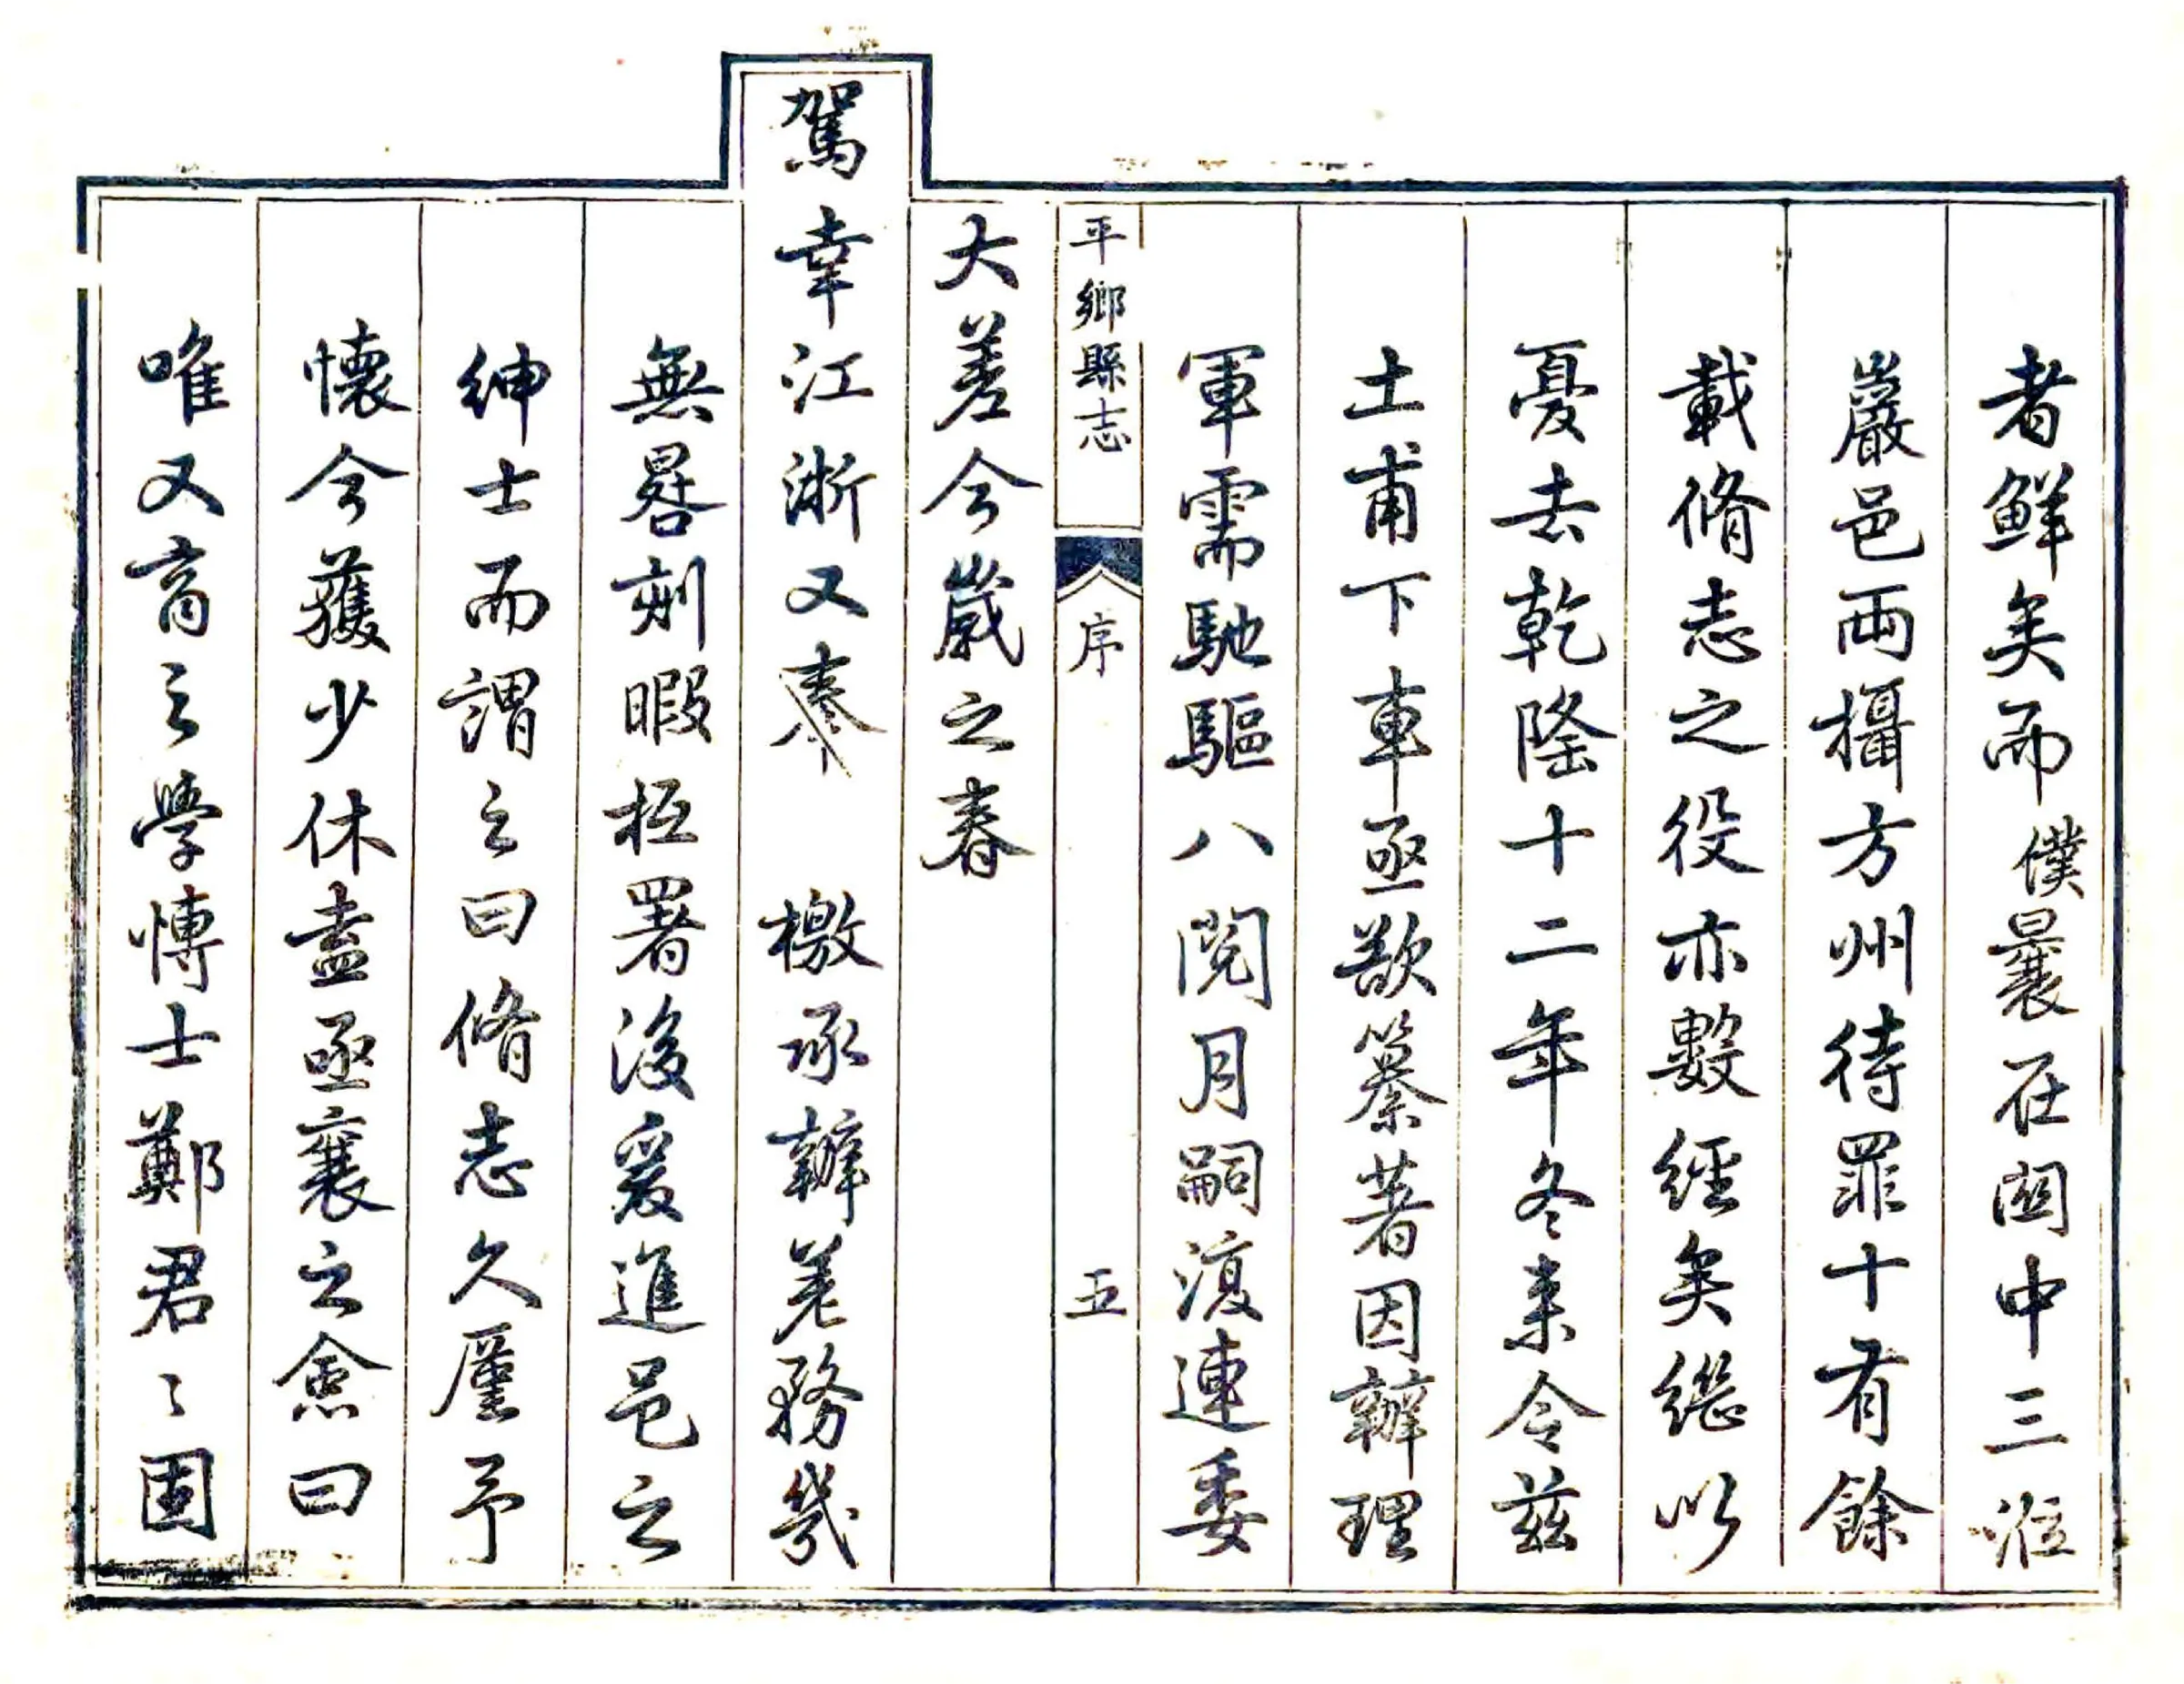 者鮮矣而僕曩在関中三涖
巖邑兩攝方州待罪十有餘
載脩志之役亦數經矣繼以
憂去乾隆十二年冬来令茲
土甫下車亟欲纂著因辦理
軍需馳驅八閱月嗣復連委
平鄉縣志 序 五
大差今歲之春
駕幸江浙又奉 檄承辦差務幾
無晷刻暇抵署後爰進邑之
紳士而謂之曰脩志久厪予
懷今獲少休盍亟襄之僉曰
唯又商之學博士鄭君〻固